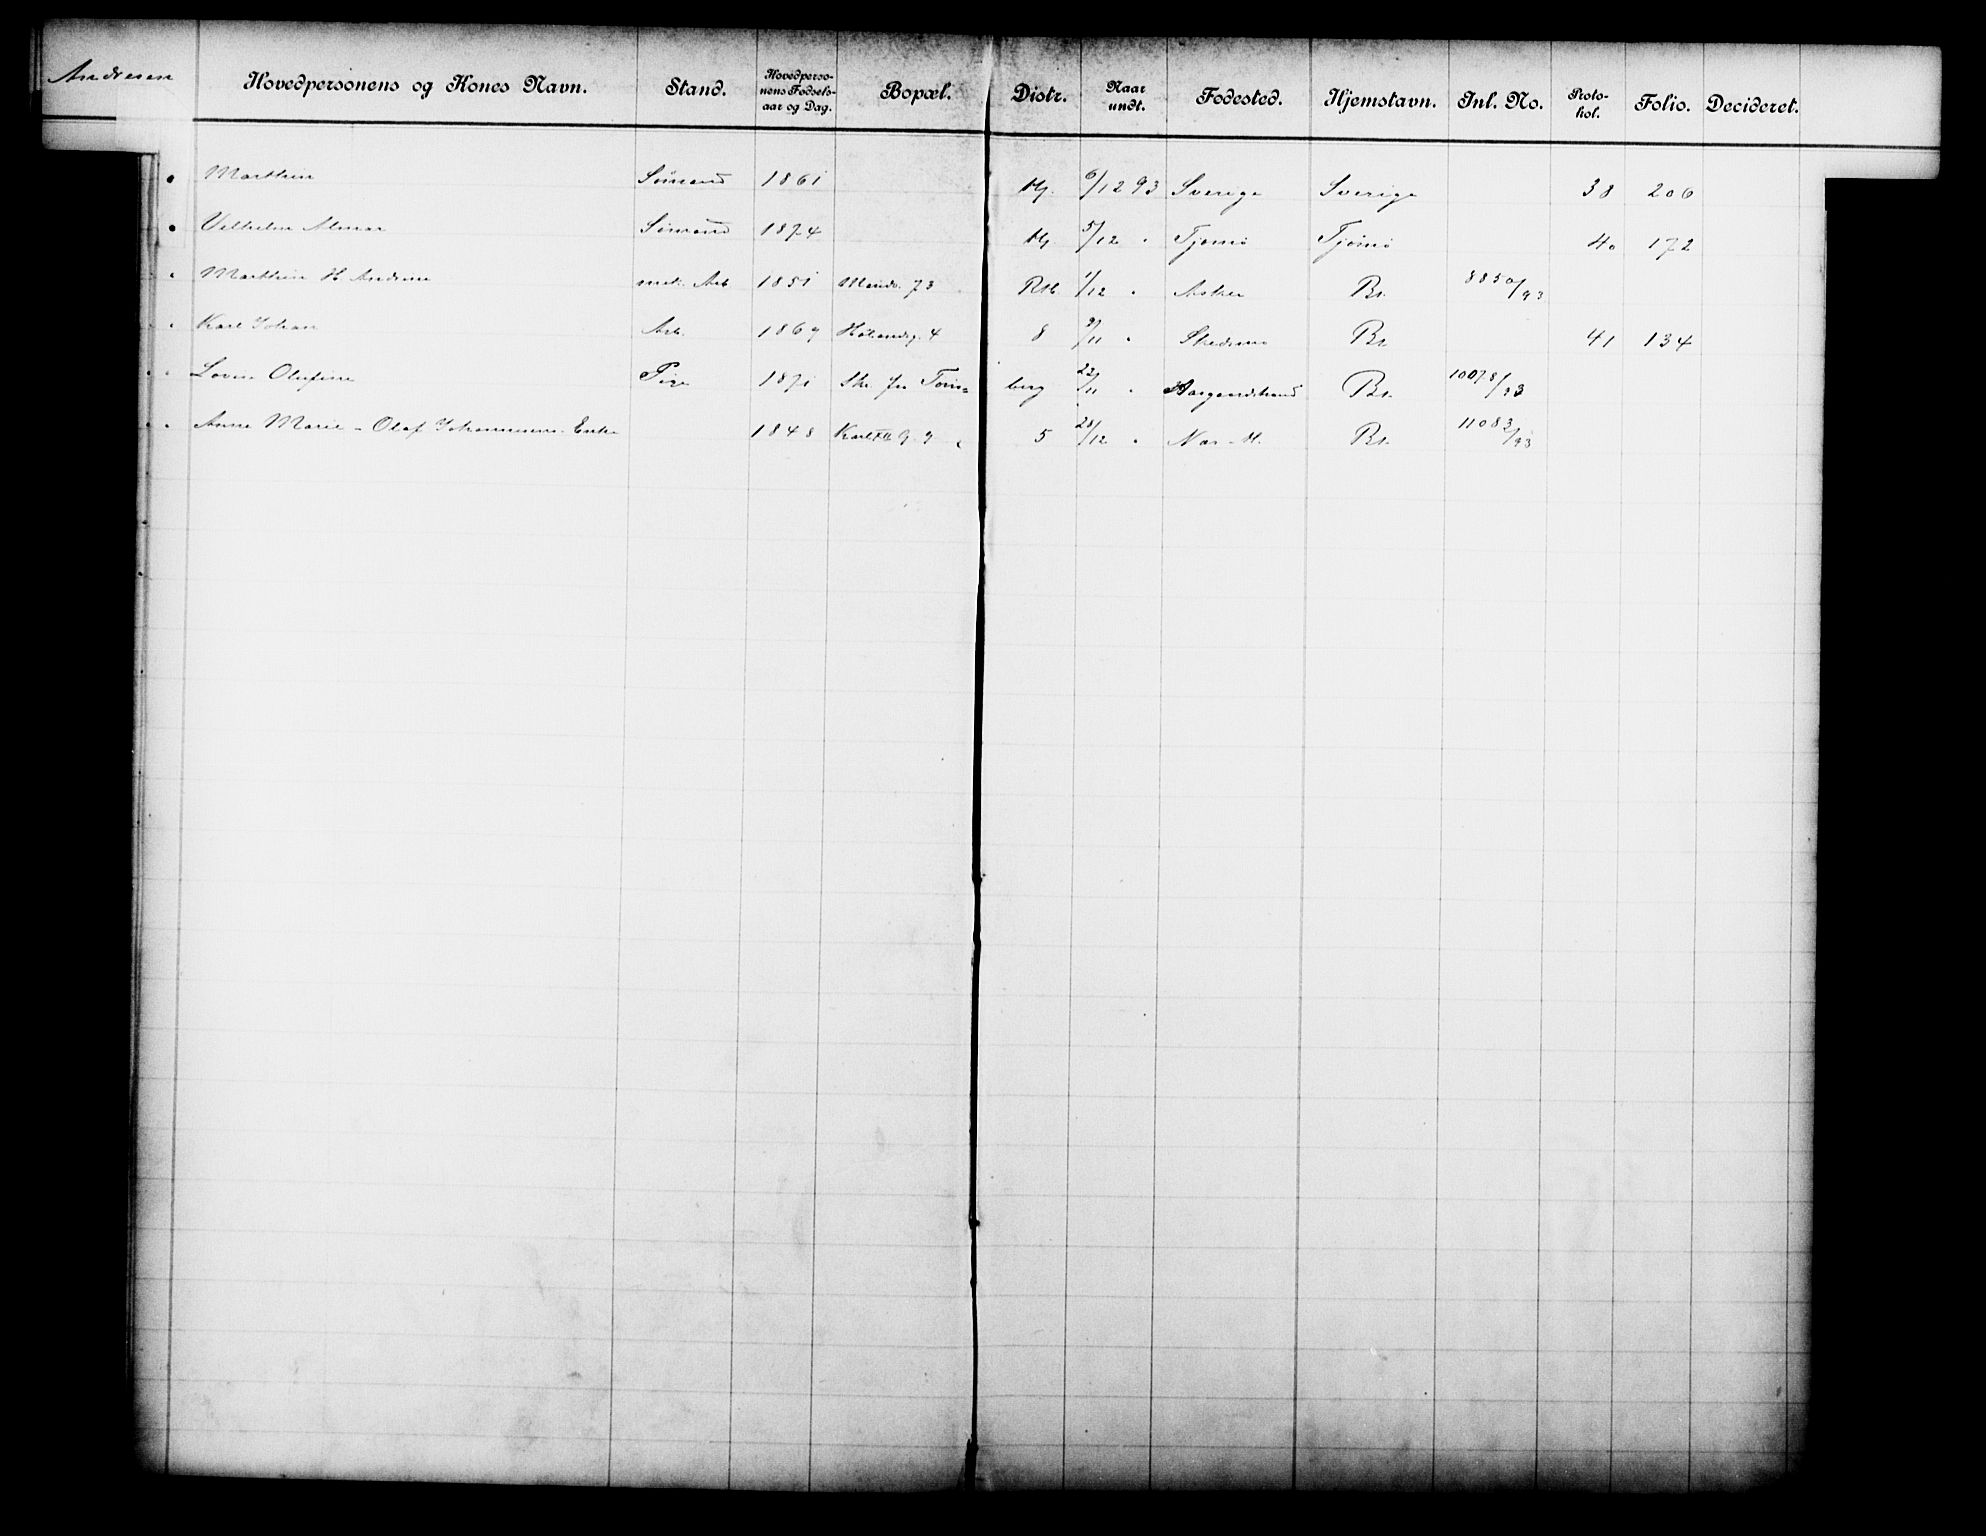 Andresen
Hovedpersonens og Kones Navn. Stand. Hovedpersonens Fødselsaar og Dag. Bopæl. Distr. Naar undt. Fødested. Hjemstavn. Inl. No. Protokol. Folio. Decideret.
Marthin Sømand 1861 Hj. 6/12 93 Sverige Sverige 38 206
Vilhelm Sømand 1874 Hj 5/12 " Tjømø Tjømø 40 172
Marthin H. Andrine Arb 1851 73 1/12 " Asker B. 8850/93
Karl Johan Arb. 1869 4 8 9/11 " Skedsmo B. 41 134
Olufine Pige 1871 Tøns= berg 22/11 " Aasgaardstrand B. 10078/93
Anne Marie - Olaf Johannesens Enke 1848 Karl XII g. 9 5 28/12 " B. 11083/93